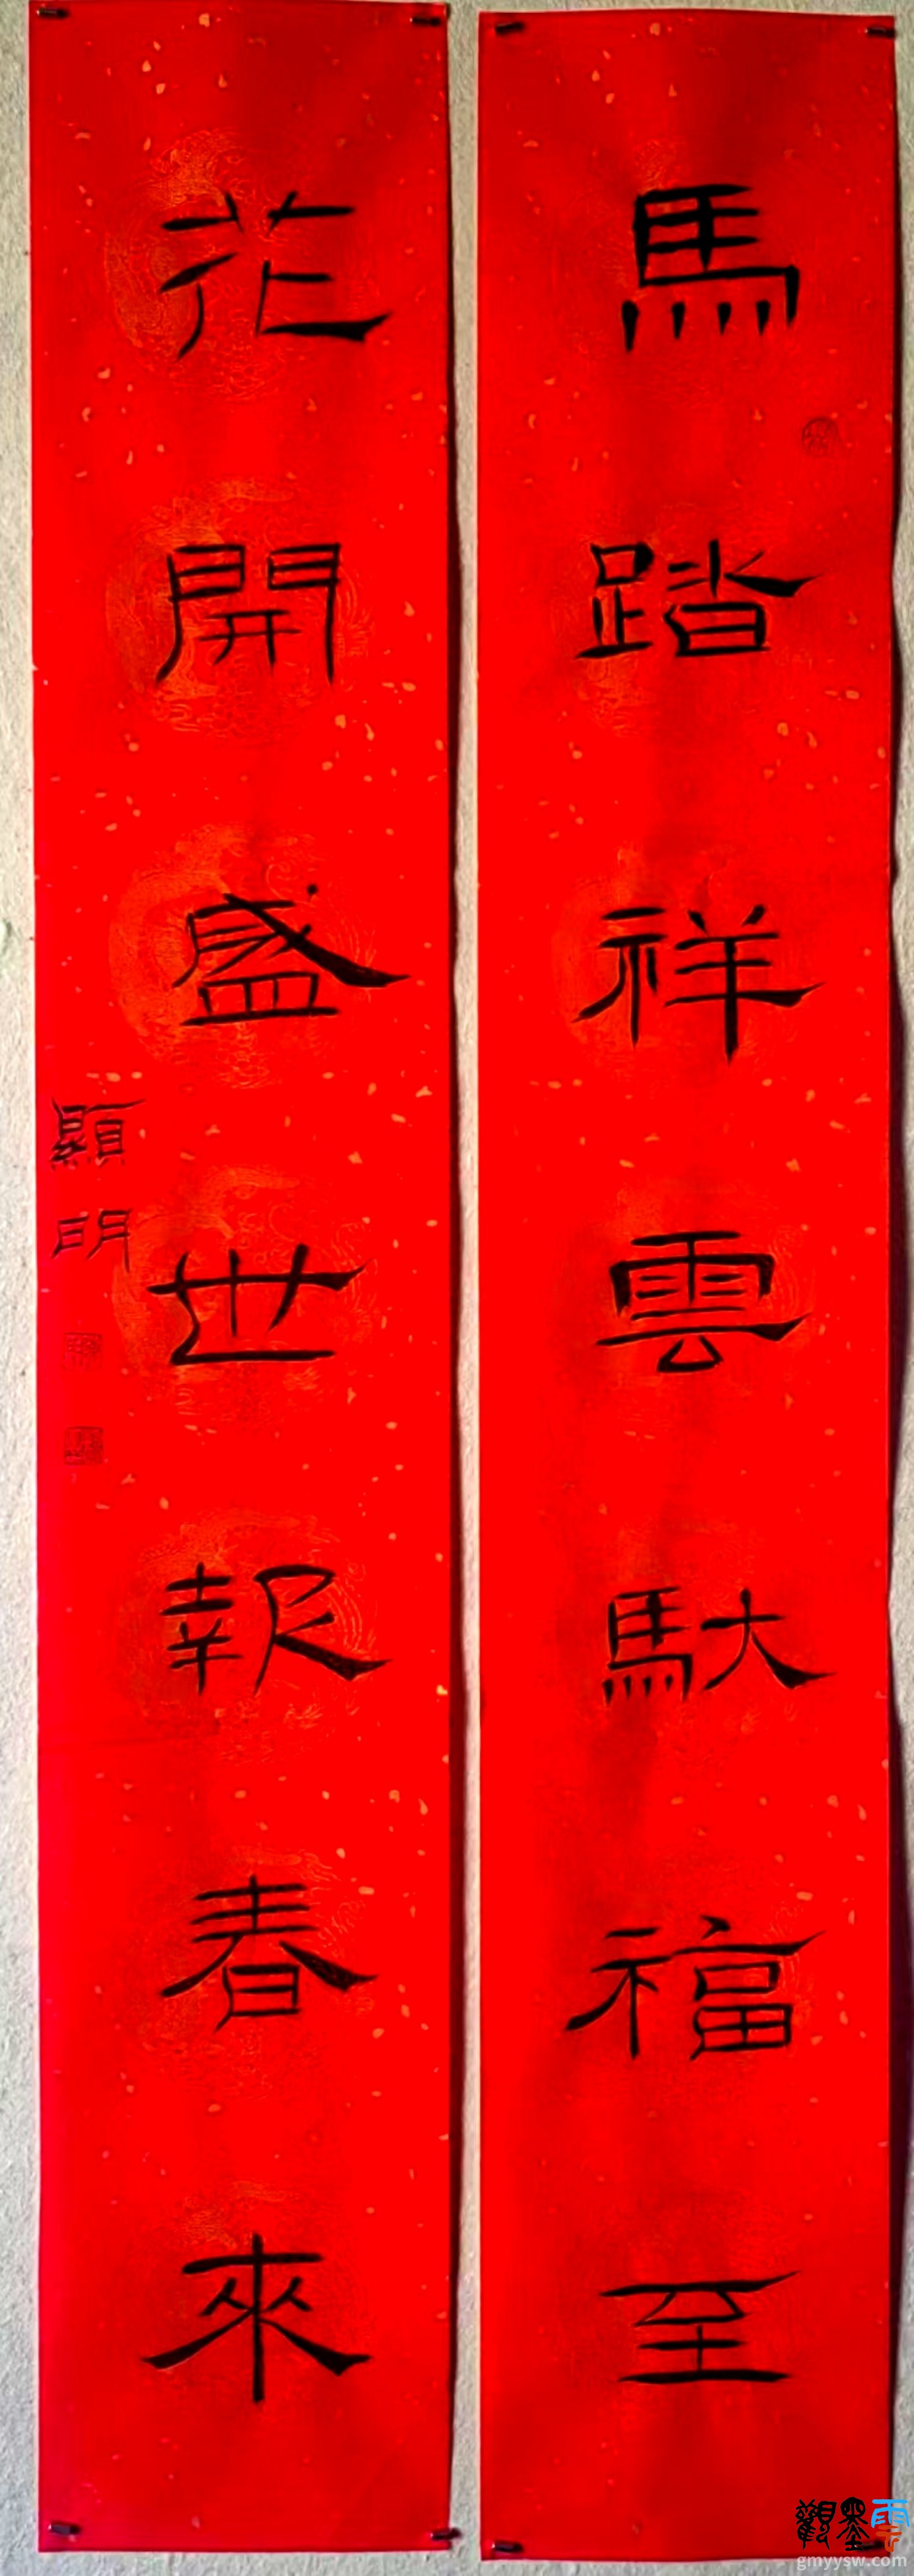 馬踏祥雲馱福至
花開盛世報春來
顯明
觀墨
gmyysw.com